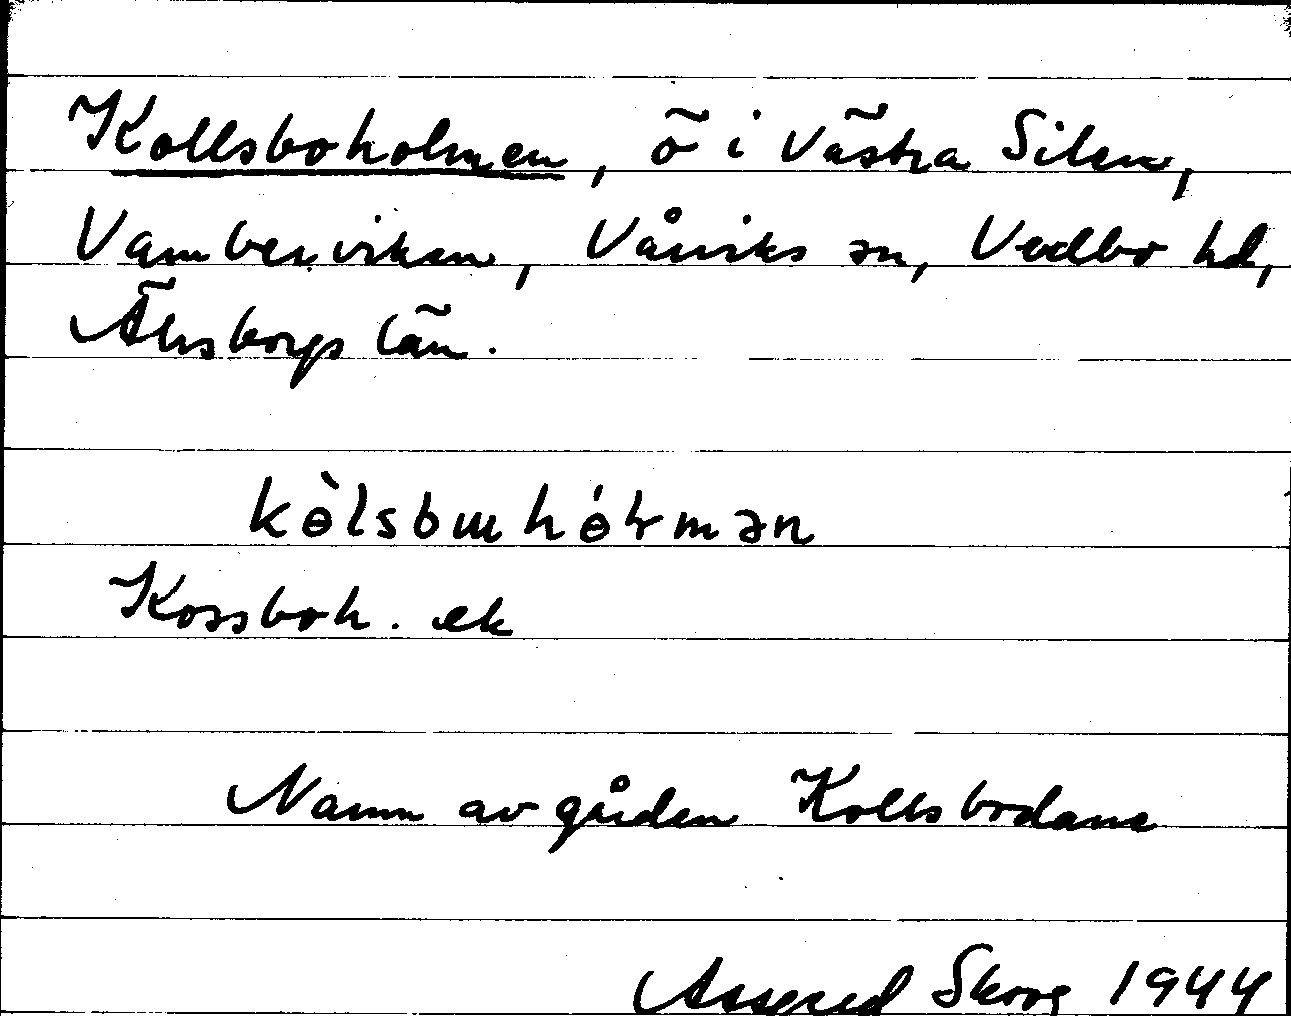 Kollsboholmen, ö i Västra Silen,
Vamberviken, Vårviks sn, Vedbo hd,
Älvsborgs län.
kɵ̀lsbɯhɵ́ɽmən
Kossboh. ek
Namn av gården Kollsbodane
Assered Skoog 1944